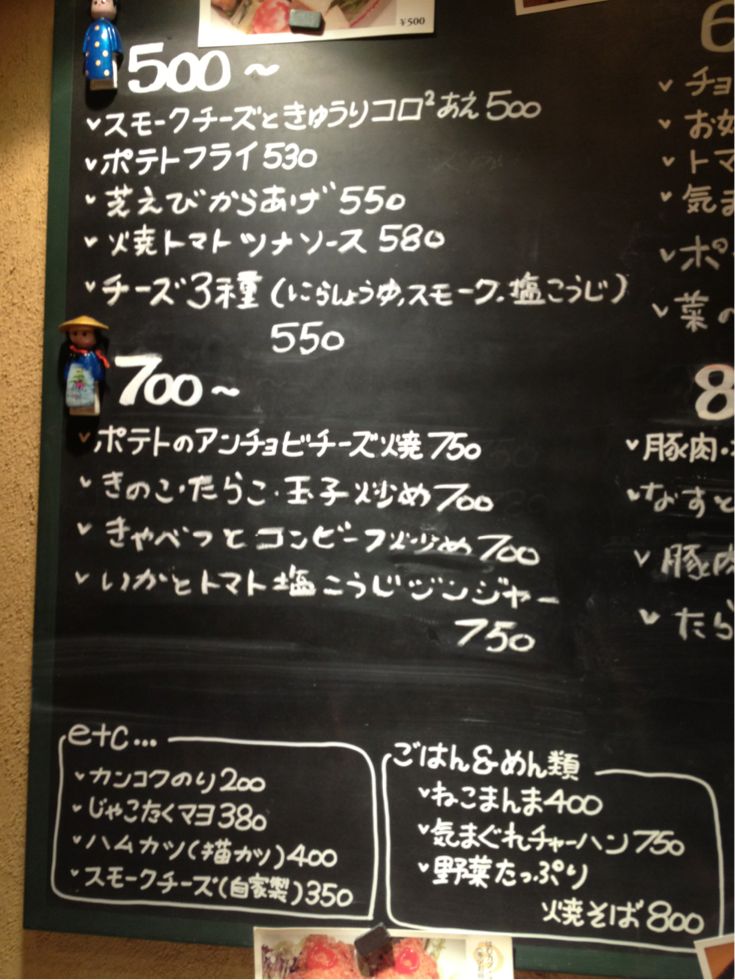 ¥500
500~
スモークチーズときゅうりコロ²あえ500
ポテトフライ530
芝えびからあげ550
火焼トマトツナソース 580
チーズ3種(にらしょうゆ,スモーク,塩こうじ)
550
700~
ポテトのアンチョビチーズ焼750
きのこ・たらこ・玉子炒め700
きゃべつとコンビーフ炒め700
いかとトマト塩こうじジンジャー
750
6
チョ
お好
トマ
気ま
ポ
菜の
8
豚肉・
なすと
豚肉
たら
etc...
カンコクのり200
じゃこたくマヨ380
ハムカツ(猫カツ)400
スモークチーズ(自家製)350
ごはん&めん類
ねこまんま400
気まぐれチャーハン750
野菜たっぷり
焼そば800